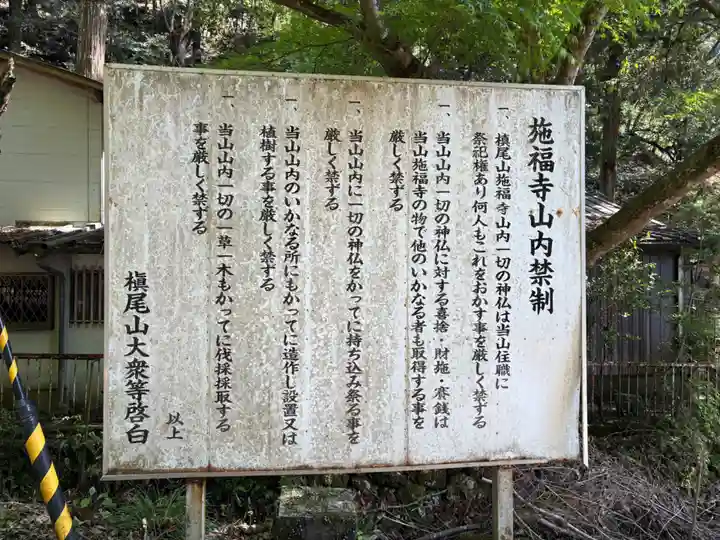 施福寺山内禁制
一、槙尾山施福寺山内一切の神仏は当山住職に
祭祀権あり何人もこれをおかす事を厳しく禁ずる
一、当山山内一切の神仏に対する喜捨・財施・賽銭は
当山施福寺の物で他のいかなる者も取得する事を
厳しく禁ずる
一、当山山内に一切の神仏をかってに持ち込み祭る事を
厳しく禁ずる
一、当山山内のいかなる所にもかってに造作し設置又は
植樹する事を厳しく禁ずる
一、当山山内一切の一草一木もかってに伐採採取する
事を厳しく禁ずる
以上
槙尾山大衆等啓白